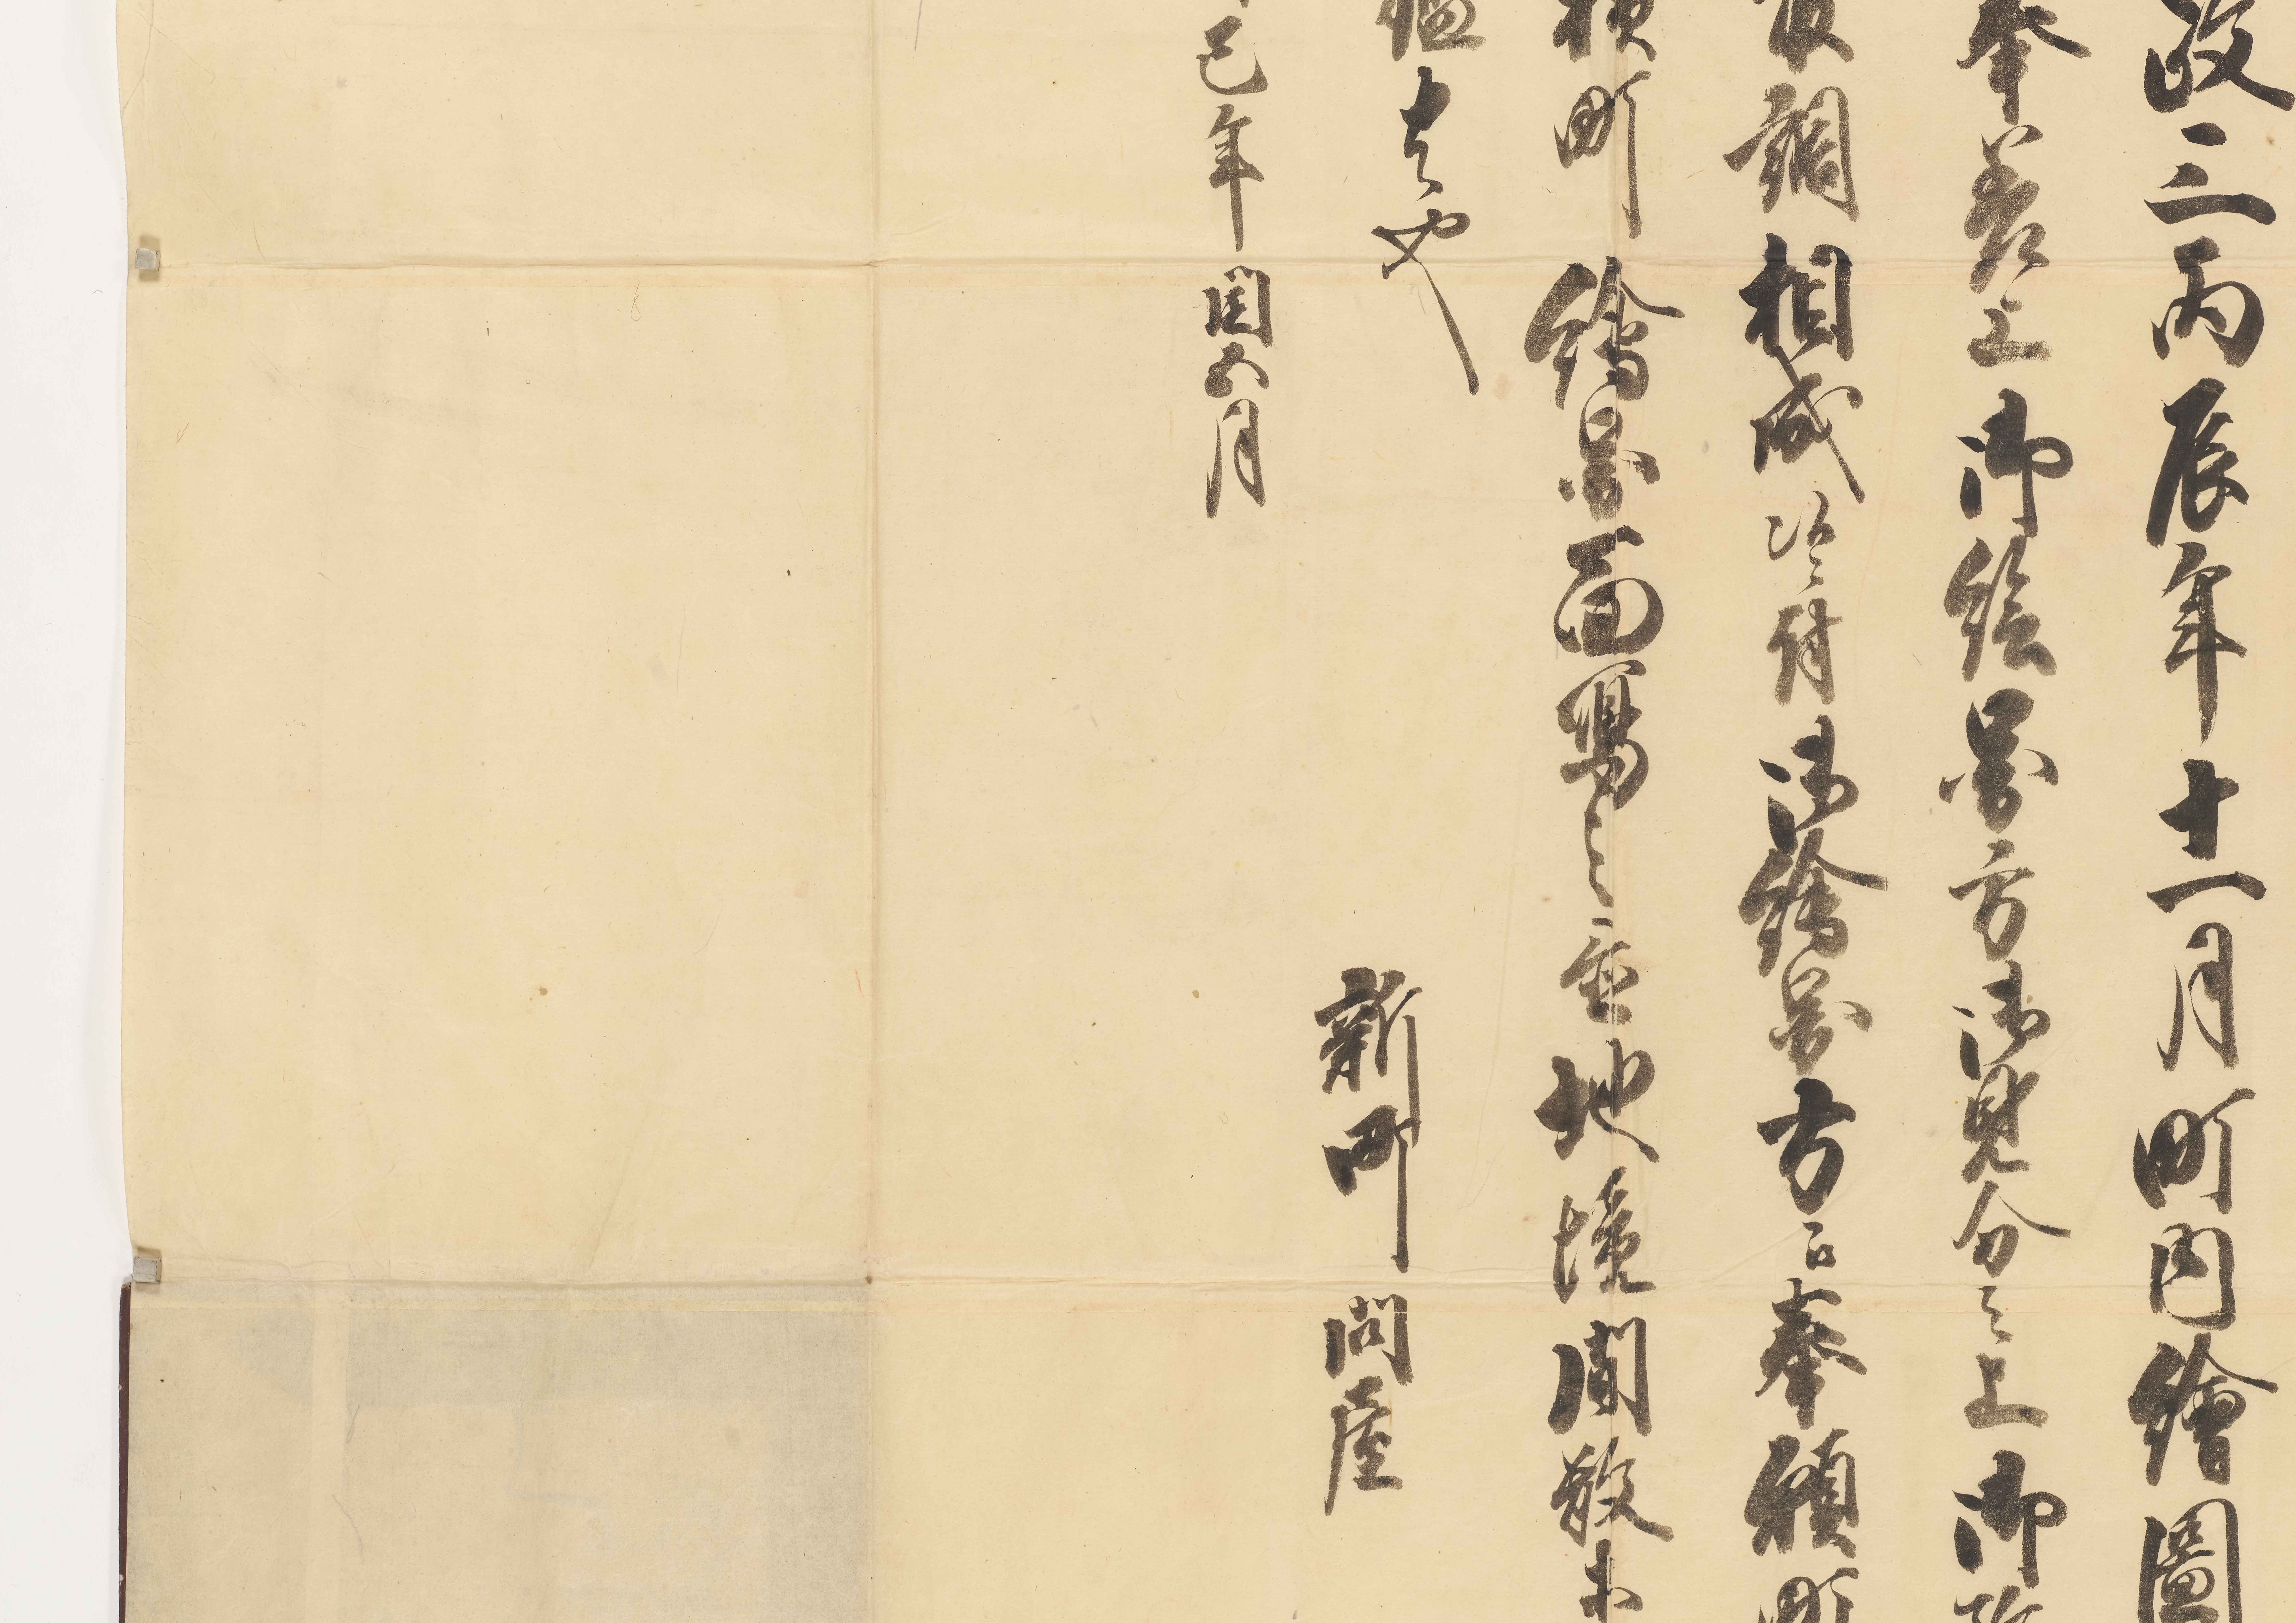 政三丙辰年十一月町内繪圖
奉差上御絵図方御見分之上御
調相成候ニ付御繪図方江奉願町
横町繪図面寫之通地境間数等
鑑者也
巳年閏五月
新町問屋